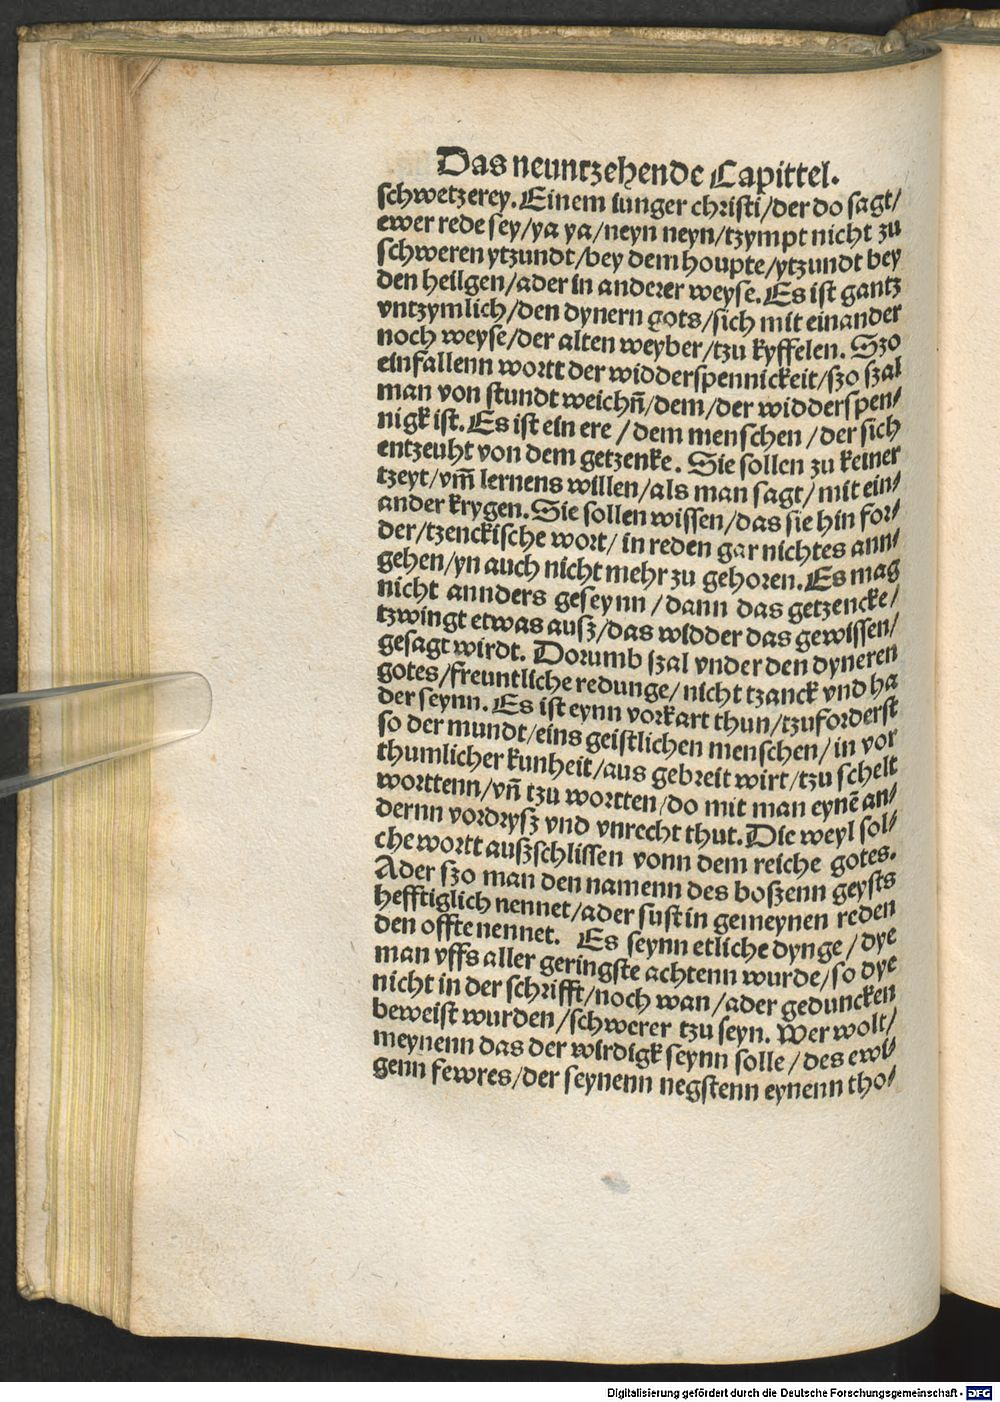 Das neuntzehende Capittel.
schwetzerey. Einem iunger christi/der do sagt/
ewer rede sey/ya ya/neyn neyn/tzympt nicht zu
schweren ytzundt/bey dem houpte/ytzundt bey
den heilgen/ader in anderer weyse. Es ist gantz
vntzymlich/den dynern gots/sich mit einander
noch weyse/der alten weyber/tzu kyffelen. Szo
einfallenn wortt der widderspennickeit/szo szal
man von stundt weichn̄/dem/der widderspen/
nigk ist. Es ist ein ere/dem menschen/der sich
entzeuht von dem getzenke. Sie sollen zu keiner
tzeyt/vm̄ lernens willen/als man sagt/mit ein/
ander krygen. Sie sollen wissen/das sie hin for/
der/tzenckische wort/in reden gar nichtes ann/
gehen/yn auch nicht mehr zu gehoren. Es mag
nicht annders geseynn/dann das getzencke/
tzwingt etwas ausz/das widder das gewissen/
gesagt wirdt. Dorumb szal vnder den dyneren
gotes/freuntliche redunge/nicht tzanck vnd ha
der seynn. Es ist eynn vorkart thun/tzuforderst
so der mundt/eins geistlichen menschen/in vor
thumlicher kunheit/aus gebreit wirt/tzu schelt
worttenn/vn̄ tzu wortten/do mit man eynē an/
dernn vordrysz vnd vnrecht thut. Die weyl sol/
che wortt auszschlissen vonn dem reiche gotes.
Ader szo man den namenn des boszenn geysts
hefftiglich nennet/ader sust in gemeynen reden
den offte nennet. Es seynn etliche dynge/dye
man vffs aller geringste achtenn wurde/so dye
nicht in der schrifft/noch wan/ader geduncken
beweist wurden/schwerer tzu seyn. Wer wolt/
meynenn das der wirdigk seynn solle/des ewi/
genn fewres/der seynenn negstenn eynenn tho/
Digitalisierung gefördert durch die Deutsche Forschungsgemeinschaft - DFG